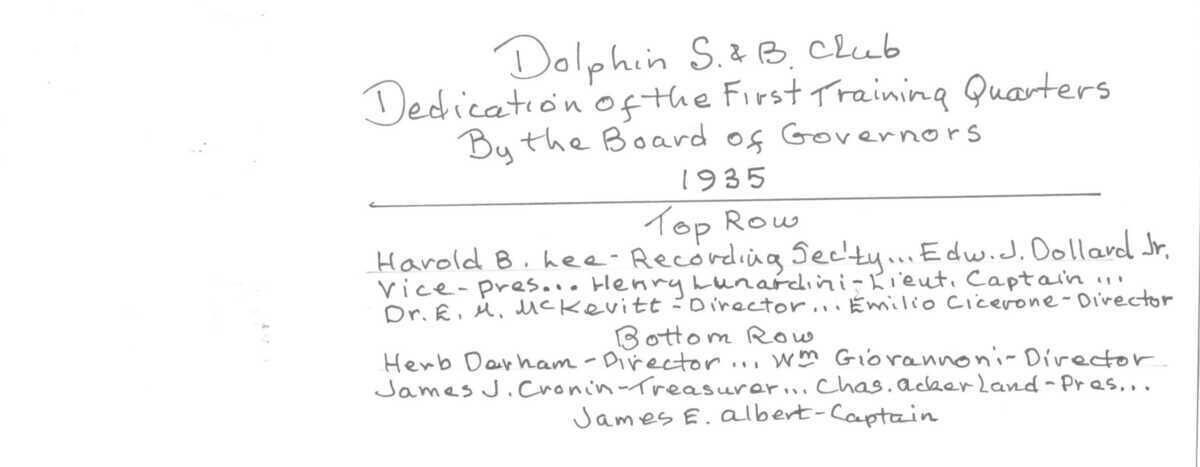 Dolphin S. & B. Club
Dedication of the First Training Quarters
By the Board of Governors
1935
Top Row
Harold B. Lee - Recording Sec'ty... Edw. J. Dollard Jr.
Vice-pres... Henry Lunardini - Lieut. Captain ...
Dr. E. M. McKevitt - Director ... Emilio Cicerone - Director
Bottom Row
Herb Darham - Director ... Wm Giovannoni - Director
James J. Cronin - Treasurer... Chas. Ackerland - Pres...
James E. Albert - Captain